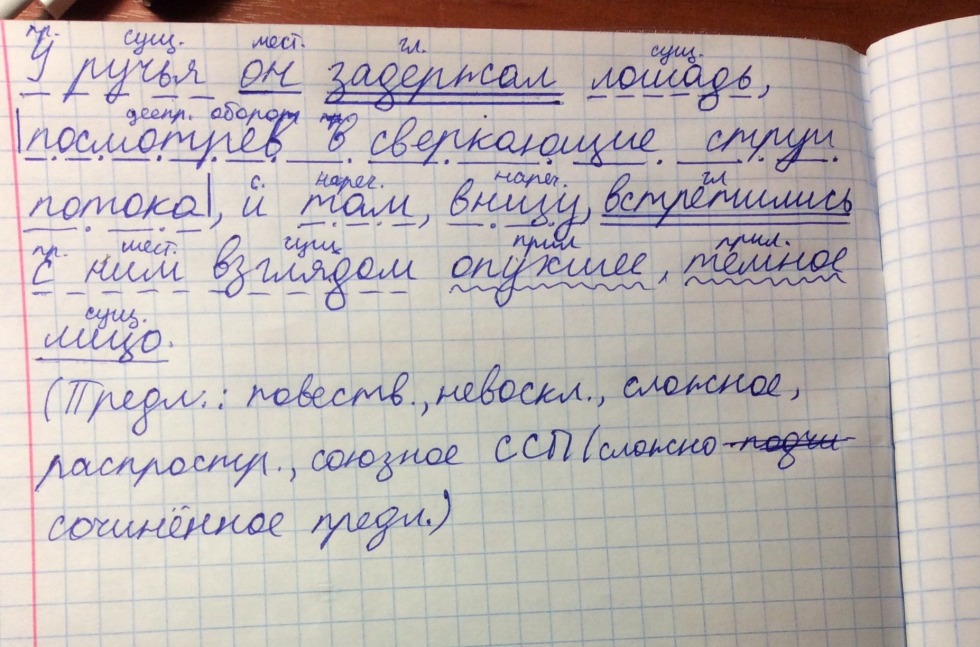 пр. сущ. мест. гл. сущ.
У ручья он задержал лошадь,
деепр. оборот пр
|посмотрев в сверкающие струи
с. нареч. нареч. гл
потока|, и там, внизу, встретились
пр. мест. сущ. прил прил.
с ним взглядом опухшее, тёмное
сущ.
лицо.
(Предл.: повеств., невоскл., сложное,
распростр., союзное ССП (сложно-подчи
сочинённое предл.)